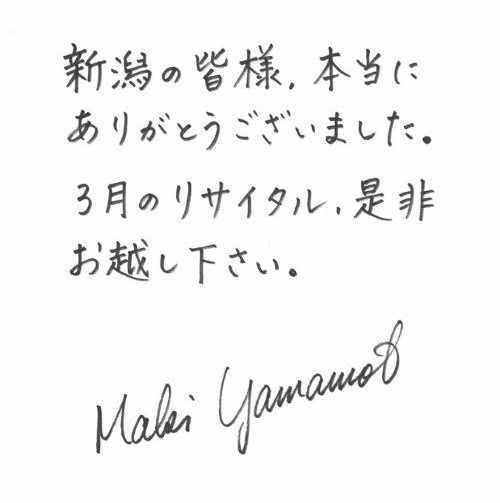 新潟の皆様、本当に
ありがとうございました。
3月のリサイタル、是非
お越し下さい。
Maki Yamamoto